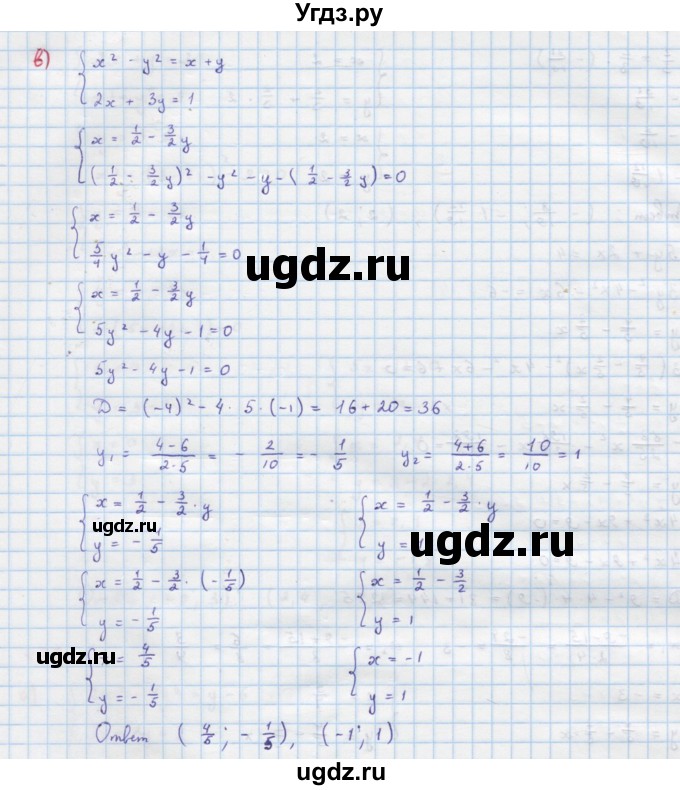 Угдз.ру
в) { x² - y² = x + y
2x + 3y = 1
{ x = 1/2 - 3/2 y
(1/2 - 3/2 y)² - y² - y - (1/2 - 3/2 y) = 0
{ x = 1/2 - 3/2 y
5/4 y² - y - 1/4 = 0
ugdz.ru
{ x = 1/2 - 3/2 y
5y² - 4y - 1 = 0
5y² - 4y - 1 = 0
D = (-4)² - 4 · 5 · (-1) = 16 + 20 = 36
y₁ = (4-6)/(2·5) = - 2/10 = - 1/5 y₂ = (4+6)/(2·5) = 10/10 = 1
{ x = 1/2 - 3/2 · y { x = 1/2 - 3/2 · y
ugdz.ru
y = - 1/5 y = 1
ugdz.ru
{ x = 1/2 - 3/2 · (- 1/5) { x = 1/2 - 3/2
y = - 1/5 y = 1
ugdz.ru
{ x = 4/5 { x = -1
y = - 1/5 y = 1
Ответ (4/5; - 1/5), (-1; 1)
ugdz.ru